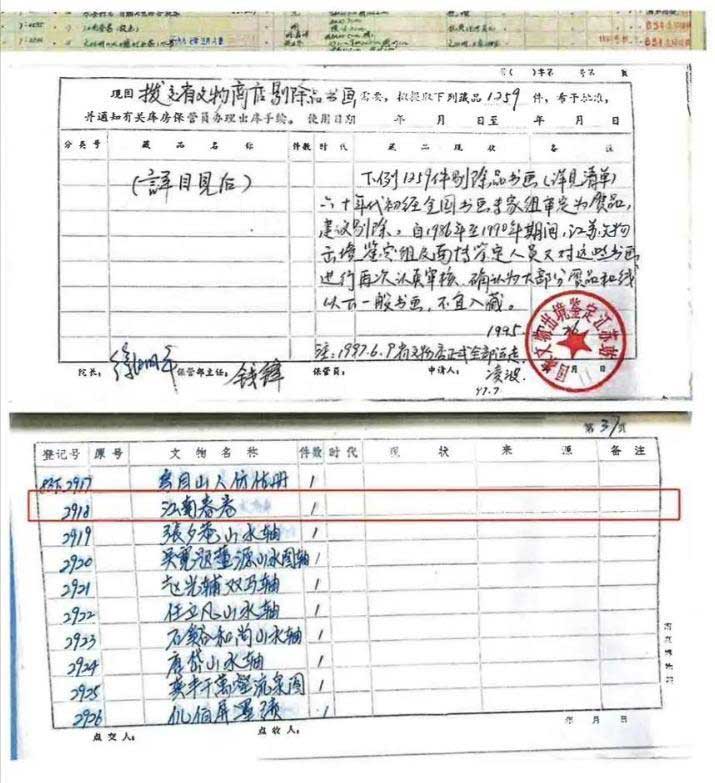 现因 拨交省文物商店剔除品书画 需要,拟提取下列藏品 1259 件,希予批准,
并通知有关库房保管员办理出库手续。 使用日期 年 月 日至 年 月 日
分类号 藏品名称 件数 时代 藏品现状 备注
(详目见后)
下例1259件剔除品书画(详见清单)
六十年代初经全国书画专家组审定为赝品,
建议剔除。自1986年至1990年期间,江苏文物
出境鉴定组及南博鉴定人员又对这些书画
进行再次认真审核,确认为大部分赝品和线
以下一般书画,不宜入藏。
1995
注:1997.6.9省文物店正式全部运走
院长: 保管部主任: 钱锋 保管员: 申请人: 凌波
97.7
第 37 页
登记号 原号 文物名称 件数 时代 现状 来源 备注
2917 1
2918 江南春卷 1
2919 张夕庵山水轴 1
2920 吴宽题董源山水图轴 1
2921 赵光辅双马轴 1
2922 任立凡山水轴 1
2923 石溪和尚山水轴 1
2924 唐岱山水轴 1
2925 1
2926 1
点交人: 点收人: 年 月 日